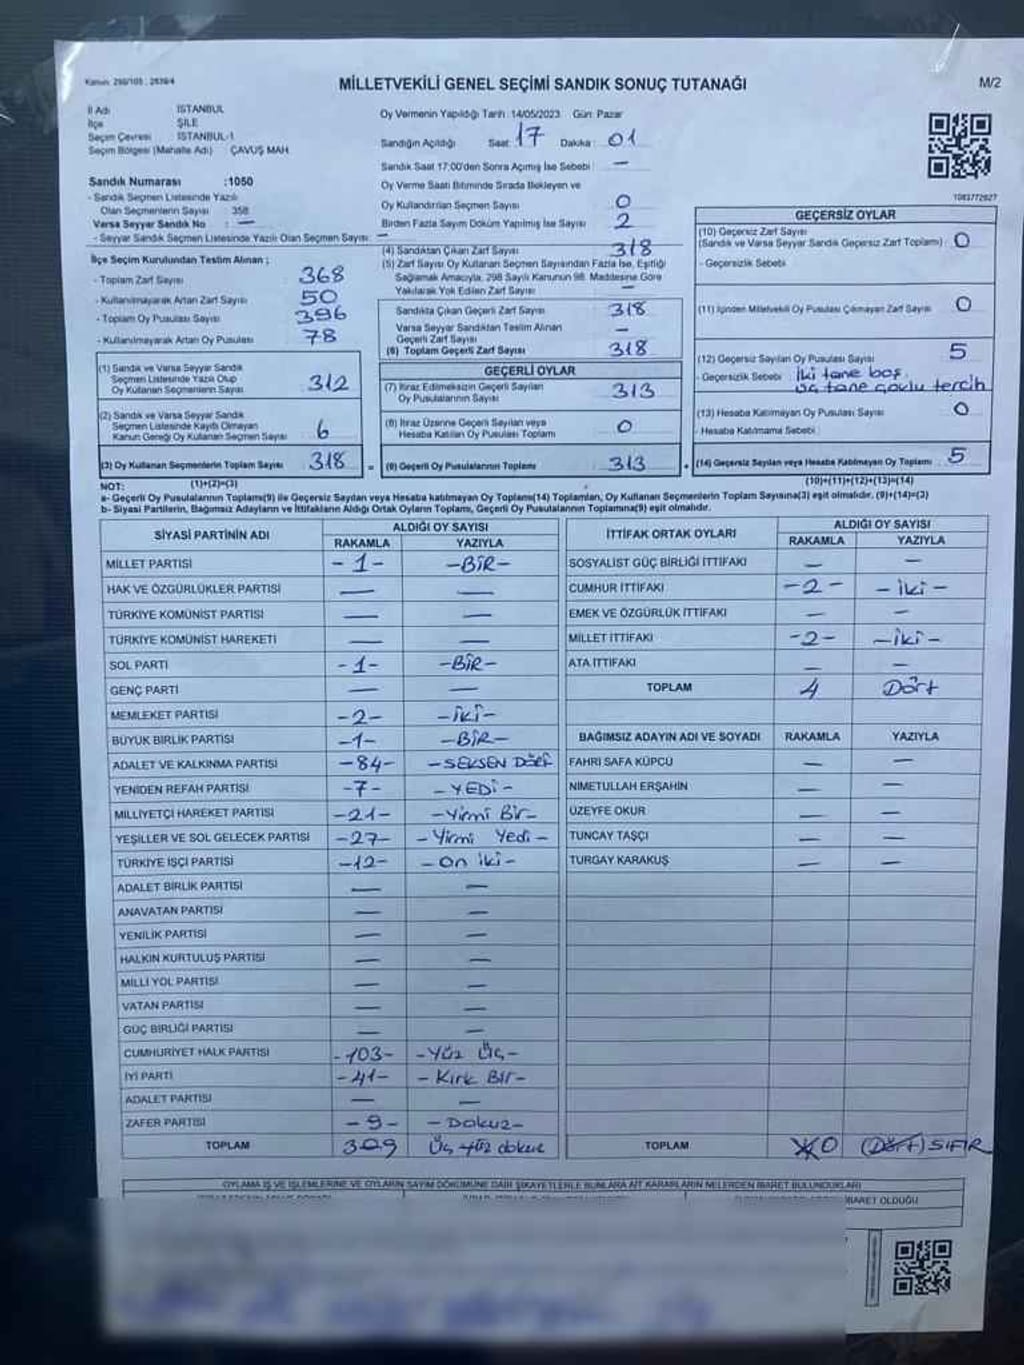 Kanun: 298/105 ; 2839/4
MİLLETVEKİLİ GENEL SEÇİMİ SANDIK SONUÇ TUTANAĞI
M/2
İl Adı İSTANBUL
İlçe ŞİLE
Seçim Çevresi İSTANBUL-1
Seçim Bölgesi (Mahalle Adı) ÇAVUŞ MAH.
Sandık Numarası :1050
- Sandık Seçmen Listesinde Yazılı
Olan Seçmenlerin Sayısı : 358
Varsa Seyyar Sandık No : —
- Seyyar Sandık Seçmen Listesinde Yazılı Olan Seçmen Sayısı: —
İlçe Seçim Kurulundan Teslim Alınan ;
- Toplam Zarf Sayısı 368
- Kullanılmayarak Artan Zarf Sayısı 50
- Toplam Oy Pusulası Sayısı 396
- Kullanılmayarak Artan Oy Pusulası 78
(1) Sandık ve Varsa Seyyar Sandık
Seçmen Listesinde Yazılı Olup
Oy Kullanan Seçmenlerin Sayısı 312
(2) Sandık ve Varsa Seyyar Sandık
Seçmen Listesinde Kayıtlı Olmayan
Kanun Gereği Oy Kullanan Seçmen Sayısı 6
(3) Oy Kullanan Seçmenlerin Toplam Sayısı 318 =
(1)+(2)=(3)
Oy Vermenin Yapıldığı Tarih :14/05/2023 Gün: Pazar
Sandığın Açıldığı Saat: 17 Dakika: 01
Sandık Saat 17:00'den Sonra Açılmış İse Sebebi : —
Oy Verme Saati Bitiminde Sırada Bekleyen ve
Oy Kullandırılan Seçmen Sayısı 0
Birden Fazla Sayım Döküm Yapılmış İse Sayısı : 2
(4) Sandıktan Çıkan Zarf Sayısı 318
(5) Zarf Sayısı Oy Kullanan Seçmen Sayısından Fazla İse, Eşitliği
Sağlamak Amacıyla, 298 Sayılı Kanunun 98. Maddesine Göre
Yakılarak Yok Edilen Zarf Sayısı —
Sandıkta Çıkan Geçerli Zarf Sayısı 318
Varsa Seyyar Sandıktan Teslim Alınan
Geçerli Zarf Sayısı —
(6) Toplam Geçerli Zarf Sayısı 318
GEÇERLİ OYLAR
(7) İtiraz Edilmeksizin Geçerli Sayılan
Oy Pusulalarının Sayısı 313
(8) İtiraz Üzerine Geçerli Sayılan veya
Hesaba Katılan Oy Pusulaları Toplamı 0
(9) Geçerli Oy Pusulalarının Toplamı 313 +
1083772627
GEÇERSİZ OYLAR
(10) Geçersiz Zarf Sayısı
(Sandık ve Varsa Seyyar Sandık Geçersiz Zarf Toplamı) 0
- Geçersizlik Sebebi
(11) İçinden Milletvekili Oy Pusulası Çıkmayan Zarf Sayısı 0
(12) Geçersiz Sayılan Oy Pusulası Sayısı 5
- Geçersizlik Sebebi İki tane boş
üç tane çoklu tercih
(13) Hesaba Katılmayan Oy Pusulası Sayısı 0
- Hesaba Katılmama Sebebi
(14) Geçersiz Sayılan veya Hesaba Katılmayan Oy Toplamı 5
(10)+(11)+(12)+(13)=(14)
NOT:
a- Geçerli Oy Pusulalarının Toplamı(9) ile Geçersiz Sayılan veya Hesaba katılmayan Oy Toplamı(14) Toplamları, Oy Kullanan Seçmenlerin Toplam Sayısına(3) eşit olmalıdır. (9)+(14)=(3)
b- Siyasi Partilerin, Bağımsız Adayların ve İttifakların Aldığı Ortak Oyların Toplamı, Geçerli Oy Pusulalarının Toplamına(9) eşit olmalıdır.
SİYASİ PARTİNİN ADI ALDIĞI OY SAYISI
RAKAMLA YAZIYLA
MİLLET PARTİSİ -1- -BİR-
HAK VE ÖZGÜRLÜKLER PARTİSİ — —
TÜRKİYE KOMÜNİST PARTİSİ — —
TÜRKİYE KOMÜNİST HAREKETİ — —
SOL PARTİ -1- -BİR-
GENÇ PARTİ — —
MEMLEKET PARTİSİ -2- -İki-
BÜYÜK BİRLİK PARTİSİ -1- -BİR-
ADALET VE KALKINMA PARTİSİ -84- -SEKSEN DÖRT
YENİDEN REFAH PARTİSİ -7- -YEDİ-
MİLLİYETÇİ HAREKET PARTİSİ -21- -Yirmi Bir-
YEŞİLLER VE SOL GELECEK PARTİSİ -27- -Yirmi Yedi-
TÜRKİYE İŞÇİ PARTİSİ -12- -On iki-
ADALET BİRLİK PARTİSİ — —
ANAVATAN PARTİSİ — —
YENİLİK PARTİSİ — —
HALKIN KURTULUŞ PARTİSİ — —
MİLLİ YOL PARTİSİ — —
VATAN PARTİSİ — —
GÜÇ BİRLİĞİ PARTİSİ — —
CUMHURİYET HALK PARTİSİ -103- -Yüz Üç-
İYİ PARTİ -41- -Kırk Bir-
ADALET PARTİSİ — —
ZAFER PARTİSİ -9- -Dokuz-
TOPLAM 309 Üç yüz dokuz
İTTİFAK ORTAK OYLARI ALDIĞI OY SAYISI
RAKAMLA YAZIYLA
SOSYALİST GÜÇ BİRLİĞİ İTTİFAKI — —
CUMHUR İTTİFAKI -2- -İki-
EMEK VE ÖZGÜRLÜK İTTİFAKI — —
MİLLET İTTİFAKI -2- -İki-
ATA İTTİFAKI — —
TOPLAM 4 Dört
BAĞIMSIZ ADAYIN ADI VE SOYADI RAKAMLA YAZIYLA
FAHRİ SAFA KÜPCÜ — —
NİMETULLAH ERŞAHİN — —
ÜZEYFE OKUR — —
TUNCAY TAŞÇI — —
TURGAY KARAKUŞ — —
TOPLAM 0 (Dört) SIFIR
OYLAMA İŞ VE İŞLEMLERİNE VE OYLARIN SAYIM DÖKÜMÜNE DAİR ŞİKAYETLERLE BUNLARA AİT KARARLARIN NELERDEN İBARET BULUNDUKLARI
İBARET OLDUĞU